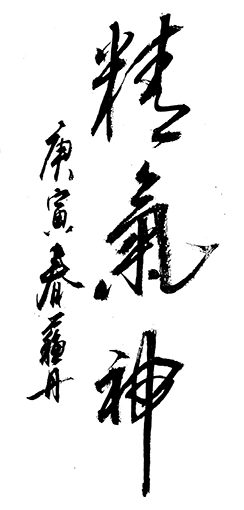 精氣神
庚寅春蘓丹